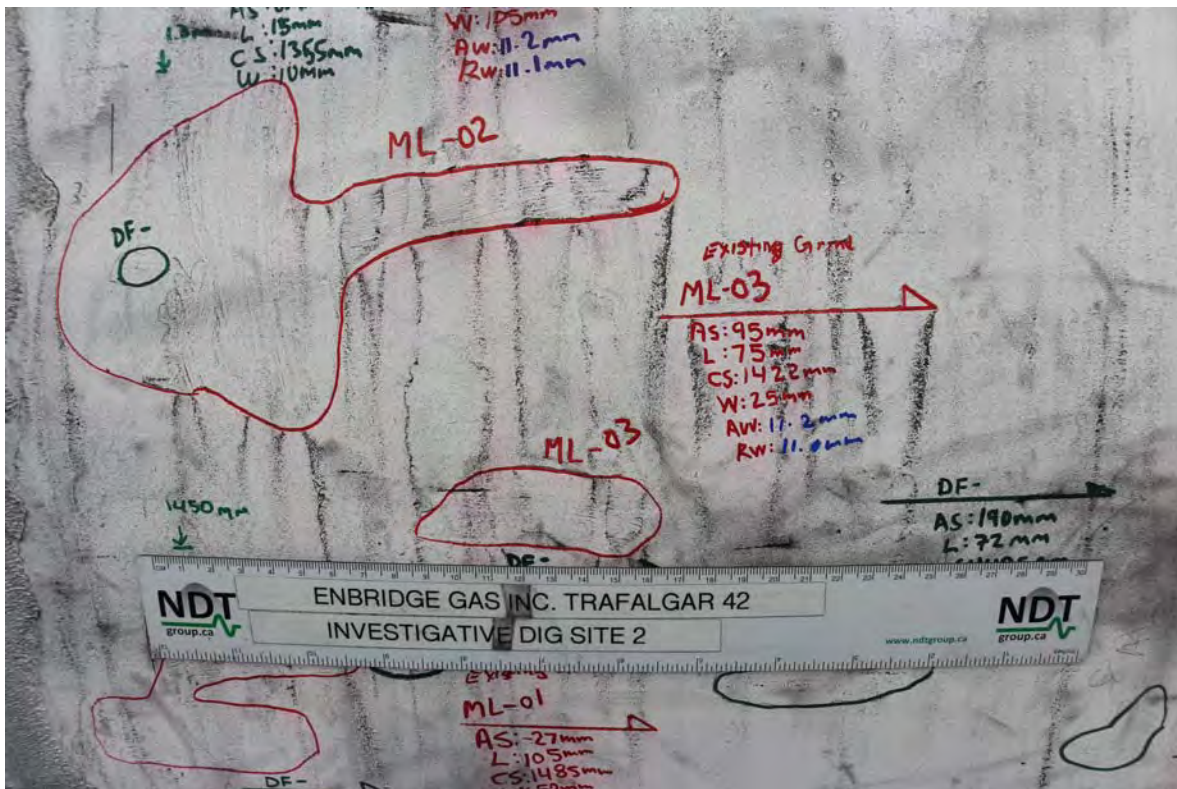 L: 15mm
CS: 1355mm
W: 10mm
W: 105mm
AW: 11.2mm
RW: 11.1mm
ML-02
DF-
Existing Grind
ML-03
AS: 95mm
L: 75mm
CS: 1422mm
W: 25mm
AW: 11.2mm
RW: 11.0mm
ML-03
1450mm
DF-
AS: 190mm
L: 72mm
DF-
NDT
group.ca
ENBRIDGE GAS INC. TRAFALGAR 42
INVESTIGATIVE DIG SITE 2
www.ndtgroup.ca
NDT
group.ca
Existing
ML-01
AS: -27mm
L: 105mm
CS: 1485mm
DF-